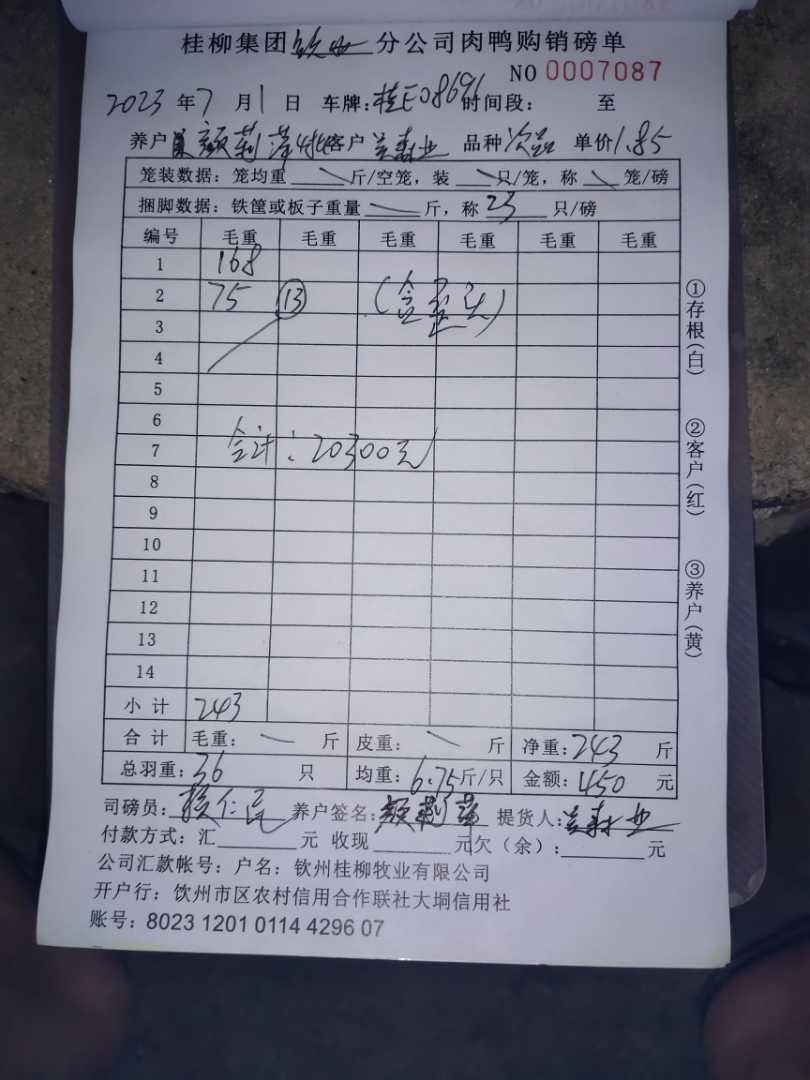 桂柳集团钦州分公司肉鸭购销磅单
NO 0007087
2023年7月1日 车牌:桂E08696 时间段: 至
养户 颜莉萍 客户 业 品种 次品 单价1.85
笼装数据:笼均重 斤/空笼,装 只/笼,称 笼/磅
捆脚数据:铁筐或板子重量 斤,称 23 只/磅
编号 毛重 毛重 毛重 毛重 毛重 毛重
1 168
2 75 13 (含 头)
3
4
5
6
7 合计:20300元
8
9
10
11
12
13
14
小计 243
合计 毛重: 斤 皮重: 斤 净重:243 斤
总羽重:36 只 均重:6.75斤/只 金额:450 元
司磅员: 仁 养户签名:颜莉萍 提货人: 业
付款方式:汇 元 收现 元欠(余): 元
公司汇款帐号:户名:钦州桂柳牧业有限公司
开户行:饮州市区农村信用合作联社大垌信用社
账号:8023 1201 0114 4296 07
①存根(白)
②客户(红)
③养户(黄)